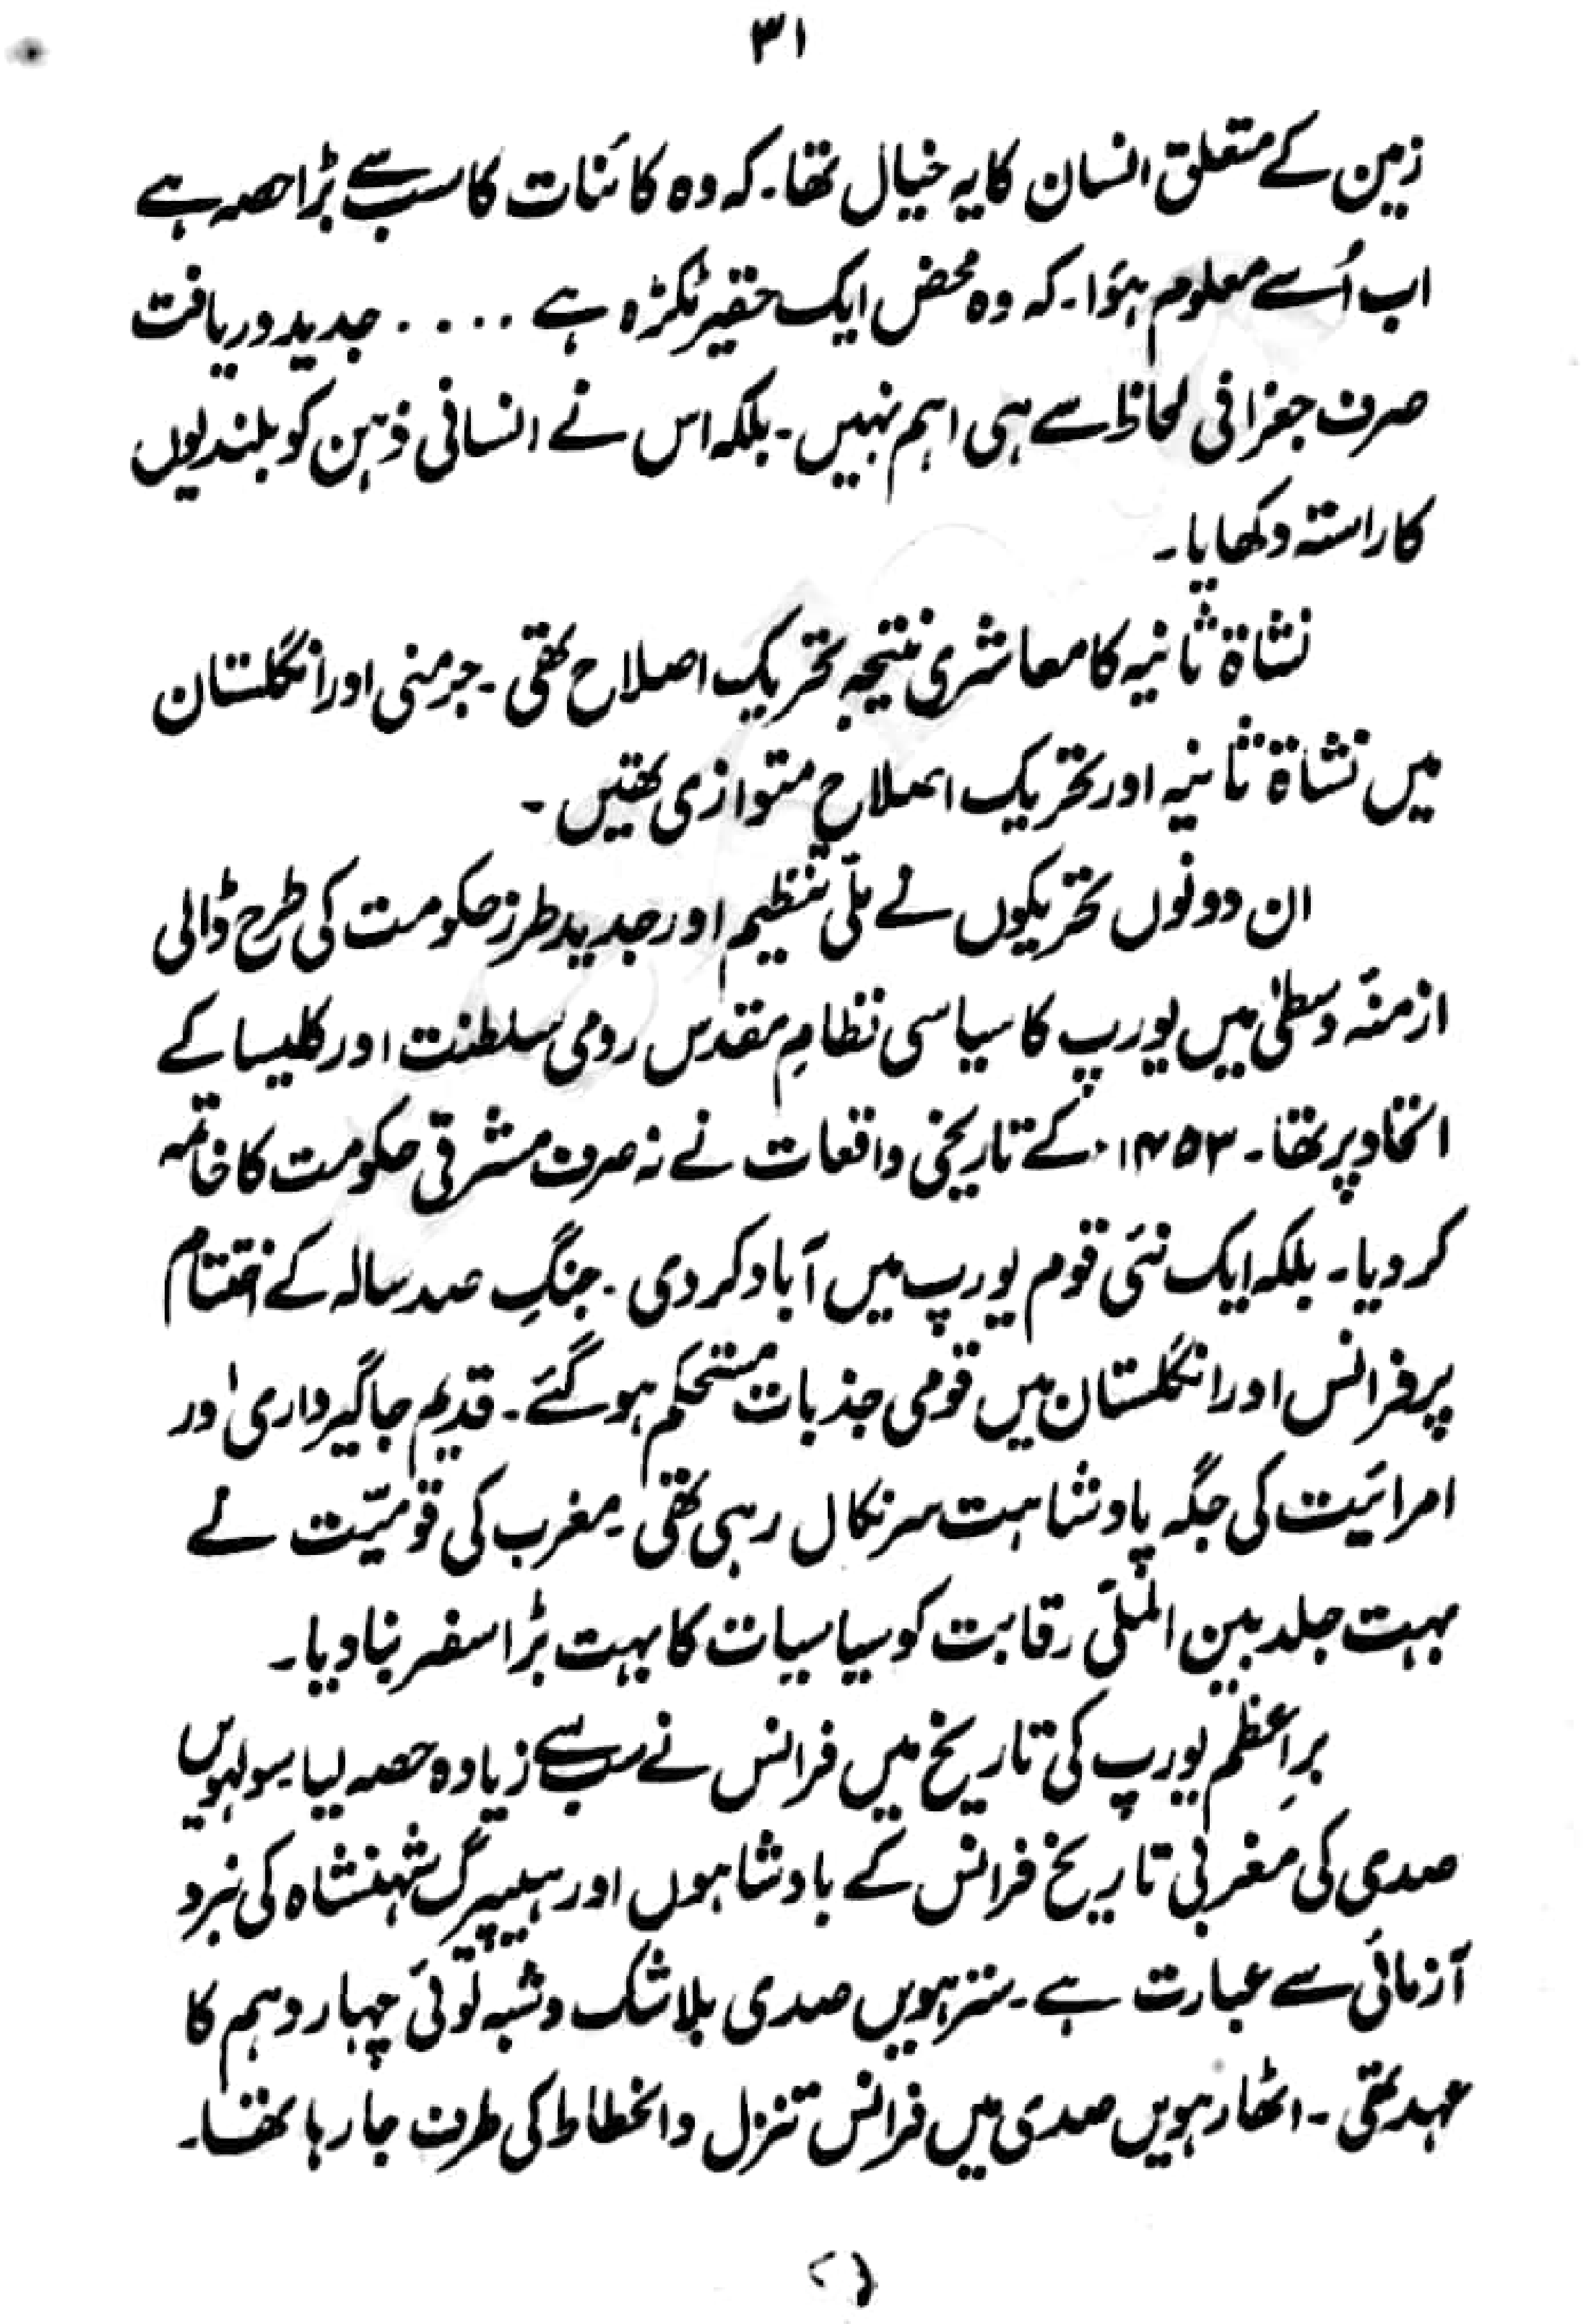 ۳۱
زمین کے متعلق انسان کا یہ خیال تھا۔ کہ وہ کائنات کا سب سے بڑا حصہ ہے
اب اُسے معلوم ہؤا۔ کہ وہ محض ایک حقیر ٹکڑہ ہے .... جدید دریافت
صرف جغرافی لحاظ سے ہی اہم نہیں۔ بلکہ اس نے انسانی ذہن کو بلندیوں
کا راستہ دکھایا۔
نشاۃ ثانیہ کا معاشری نتیجہ تحریک اصلاح تھی۔ جرمنی اور انگلستان
میں نشاۃ ثانیہ اور تحریک اصلاح متوازی تھیں۔
ان دونوں تحریکوں نے ملّی تنظیم اور جدید طرز حکومت کی طرح ڈالی
ازمنہٗ وسطیٰ میں یورپ کا سیاسی نظامِ مقدس رومی سلطنت اور کلیسا کے
اتحاد پر تھا۔ ۱۴۵۳ء کے تاریخی واقعات نے نہ صرف مشرقی حکومت کا خاتمہ
کر دیا۔ بلکہ ایک نئی قوم یورپ میں آباد کر دی۔ جنگِ صد سالہ کے اختتام
پر فرانس اور انگلستان میں قومی جذبات مستحکم ہو گئے۔ قدیم جاگیرداری اور
امرائیت کی جگہ پادشاہت سر نکال رہی تھی۔ مغرب کی قومیّت نے
بہت جلد بین المللّی رقابت کو سیاسیات کا بہت بڑا سفر بنا دیا۔
برِاعظم یورپ کی تاریخ میں فرانس نے سب سے زیادہ حصہ لیا۔ سولہویں
صدی کی مغربی تاریخ فرانس کے بادشاہوں اور ہیپسبرگ شہنشاہ کی نبرد
آزمائی سے عبارت ہے۔ سترہویں صدی بلا شک و شبہ لوئی چہار دہم کا
عہد تھی۔ اٹھارہویں صدی میں فرانس تنزل و انحطاط کی طرف جا رہا تھا۔